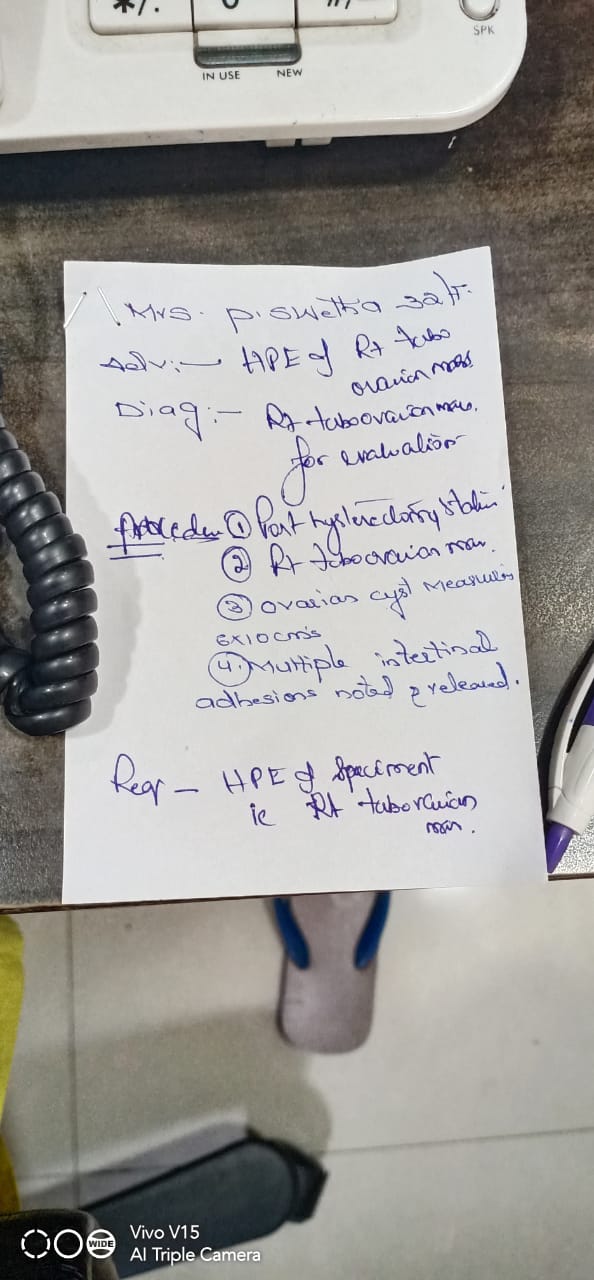 */.
0
#/
SPK
IN USE NEW
Mrs. P. Swetha 32/F.
Adv:- HPE of Rt tubo
ovarian mass
Diag:- Rt tuboovarian mass.
for evaluation
① Post hysterectomy status
② Rt tuboovarian mass.
③ Ovarian cyst measures
6x10 cms
④ Multiple intestinal
adhesions noted & released.
Req - HPE of Speciment
ie Rt tubovarian
mass.
WIDE
Vivo V15
AI Triple Camera